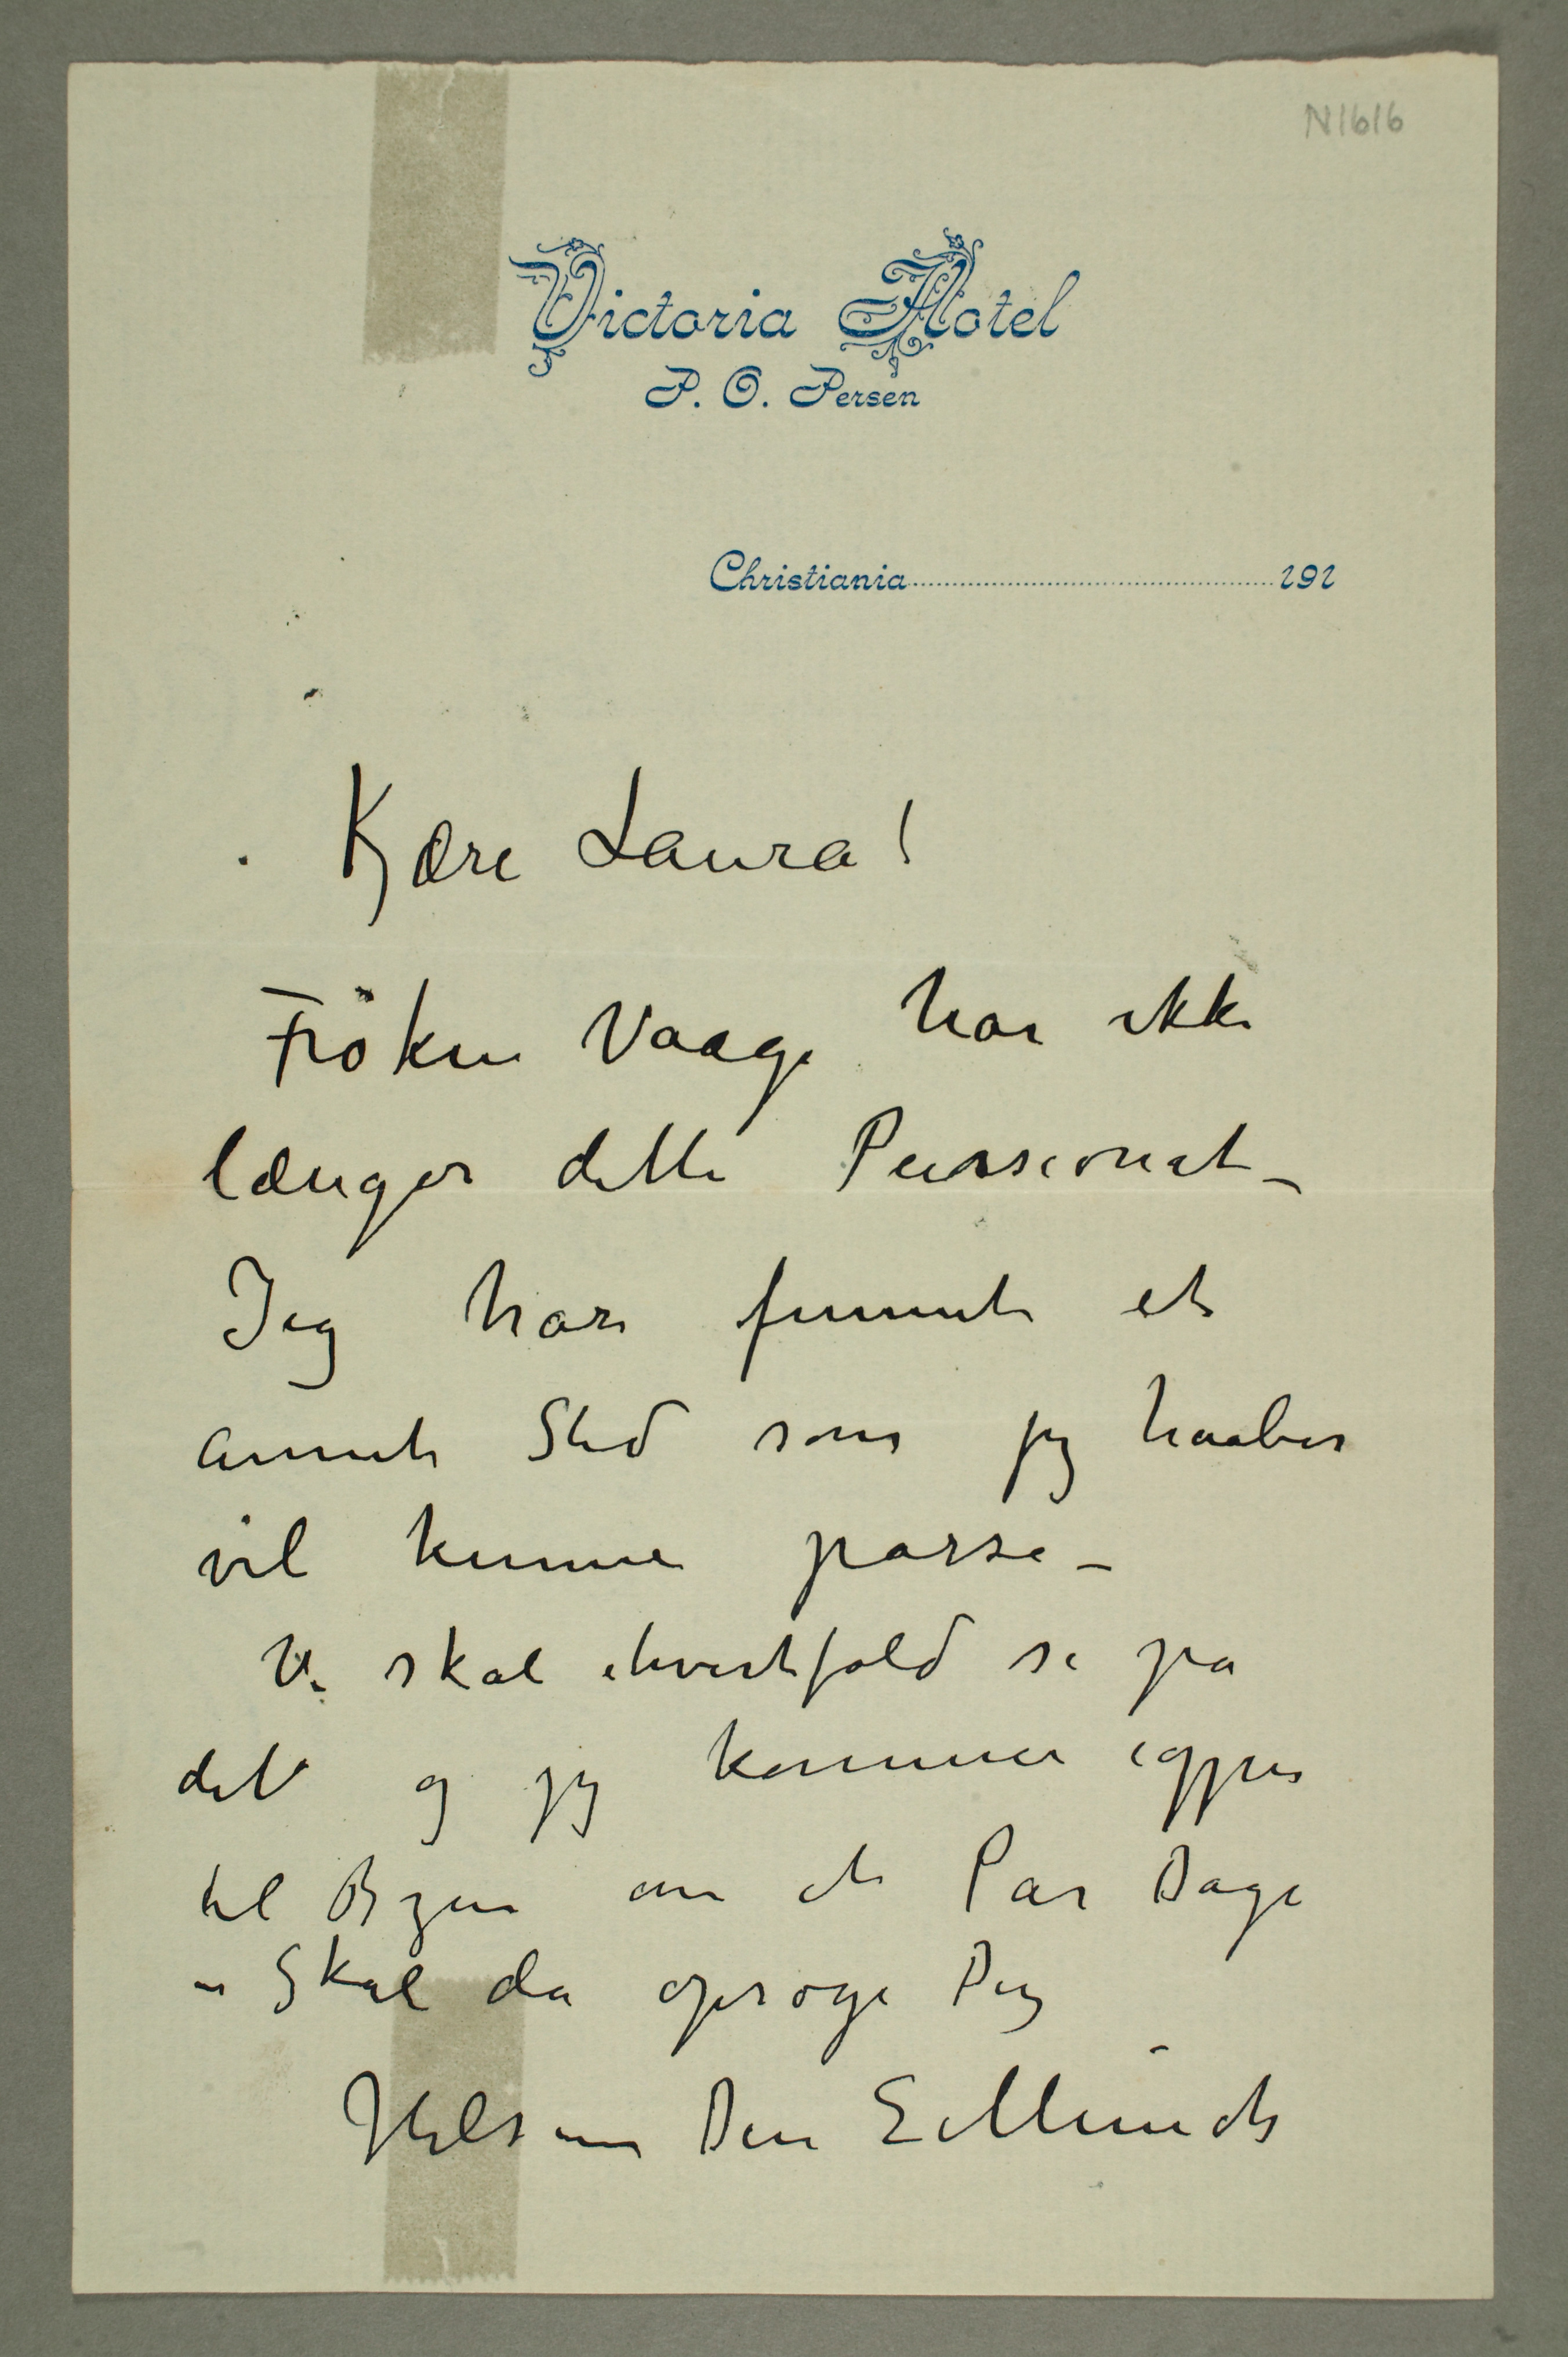 N1616
Victoria Hotel
P. O. Persen
Christiania 191
Kjære Laura!
Fröken Vaage har ikke
længer dette Pensionat –
Jeg har funnet et
annet Sted som jeg haaber
vil kunne passe –
Vi skal ihvertfald se på
det og jeg kommer igjen
til Byen om et Par Dage
– Skal da opsøge Dig
Hilsen Din E Munch